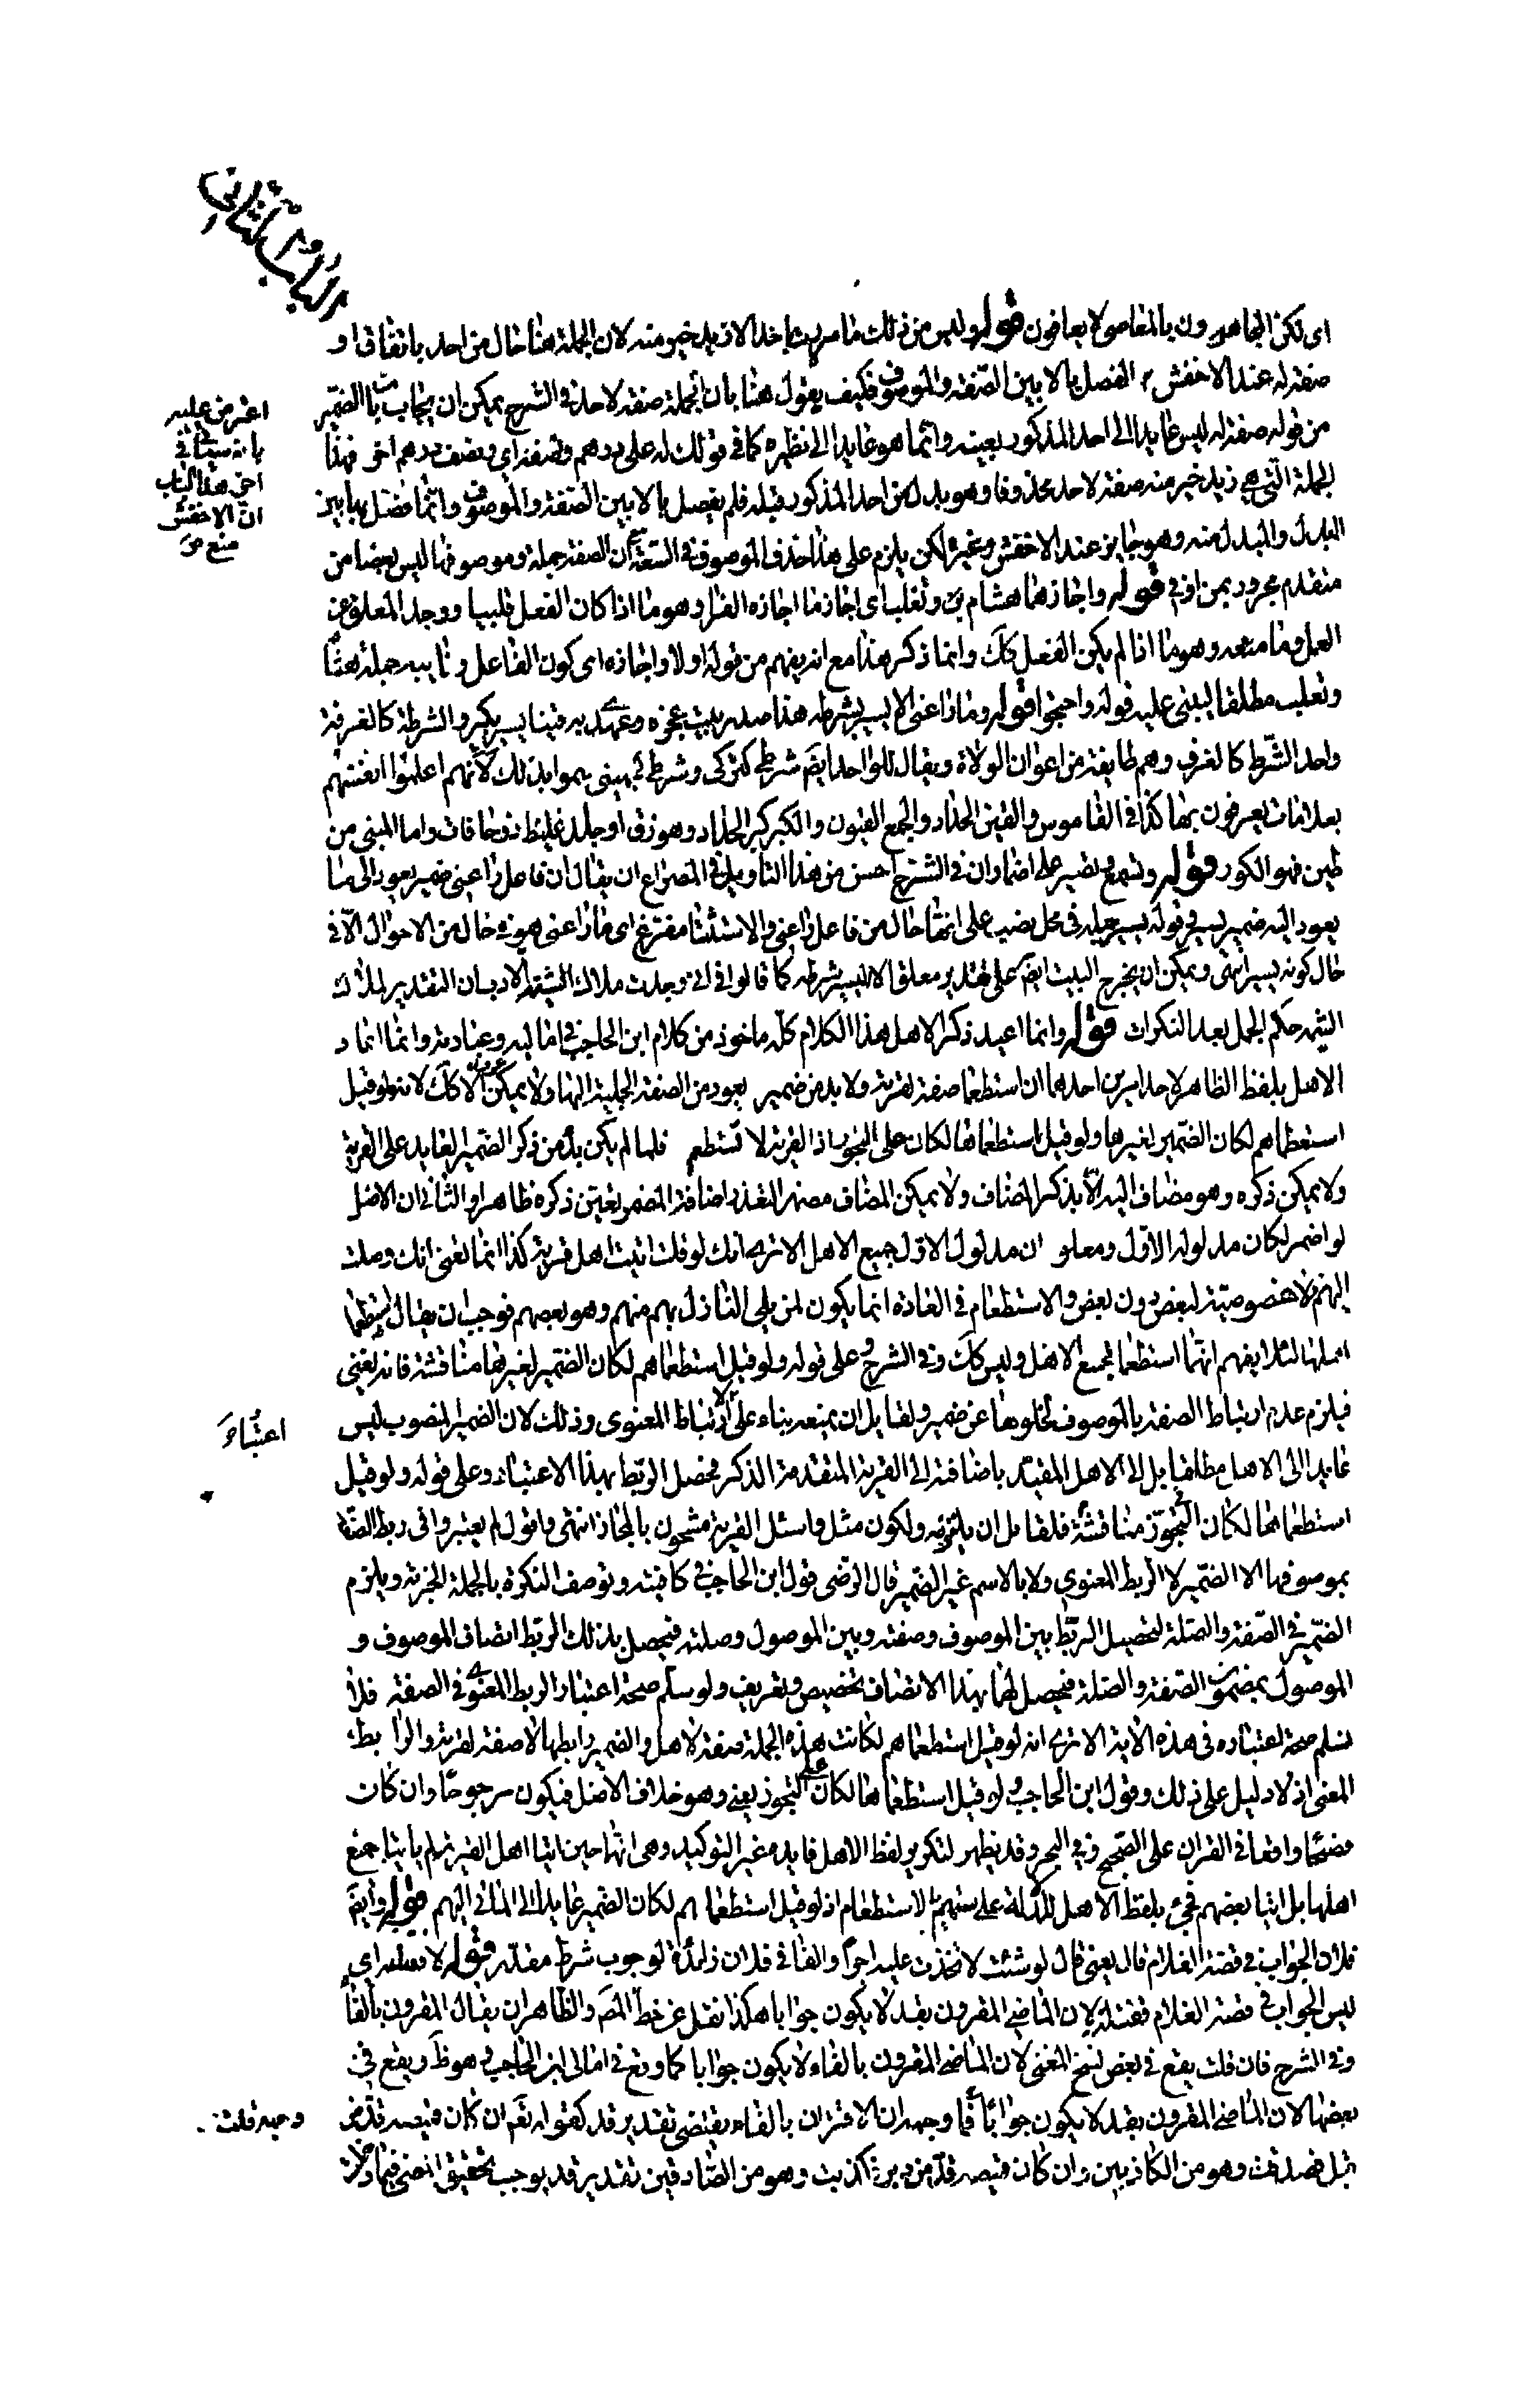 الباب الثاني
اى لكن المجاهرون بالمعاصى لا يعافون قوله وليس من ذلك ما مررت باحد الا زيد خير منه لان الجملة هنا حال من احد باتفاق او
صفة له عند الاخفش الفصل بالا بين الصفة والموصوف فكيف يقول هنا بان الجملة صفة لاحد في الشرح يمكن ان يجاب بان الضمير
اعترض عليه
بانه سيأتى في
آخر هذا الباب
ان الاخفش
منع من
من قوله صفة له ليس عايدا الى احد المذكور بعينه وانما هو عايد الى نظيره كما في قولك له على درهم ونصفه اي ونصف درهم اخر فهذا
الجملة التى هى زيد خير منه صفة لاحد محذوفا وهو بدل من احد المذكور قبله فلم يفصل بالا بين الصفة والموصوف وانما فصل بها بين
البدل والمبدل منه وهو جايز عند الاخفش وغيره لكن يلزم على هذا حذف الموصوف في السعة مع ان الصفة جملة وموصوفها ليس بعضا من
متقدم مجرور بمن او في قوله واجازهما هشام وثعلب اى اجاز ما اجازه الفراء وهو ما اذا كان الفعل قلبيا ووجد المعلق عن
العمل وما منعه وهو ما اذا لم يكن الفعل كك وانما ذكر هذا مع انه يفهم من قوله اولا واجازه اى كون الفاعل ونايبه جملة هشام
وثعلب مطلقا ليبنى عليه قوله واحتجوا قوله وما راعنى الا يسير بشرطة هذا صدر بيت عجزه وعهدى به قينا يسير بكير والشرطة كالغرفة
واحد الشرط كالغرف وهم طايفة من اعوان الولاة ويقال للواحد ايضَ شرطى كتركى وشرطى كجهنى سموا بذلك لانهم اعلموا انفسهم
بعلامات يعرفون بها كذا في القاموس والقين الحداد والجمع القيون والكير كير الحداد وهو زق او جلد غليظ ذو حافات واما المبنى من
طين فهو الكور قوله وتسمع بضير على اضمار ان في الشرح احسن من هذا التاويل في المصراع ان يقال ان فاعل راعنى ضمير يعود الى ما
يعود اليه ضمير يسير في قوله يسير جملة في محل نصب على انها حال من فاعل راعنى والاستثناء مفرغ اى ما راعنى هو في حال من الاحوال الا في
حال كونه يسير انتهى ويمكن ان يخرج البيت ايضَ على تقدير معلقا الا ليسير بشرطة كما قالوا في انى وجدت ملاك الشيمة الادب ان التقدير لملاك
الشيمة حكم الجمل بعد النكرات قوله وانما اعيد ذكر الاهل هذا الكلام كله ماخوذ من كلام ابن الحاجب في اماليه وعبارته وانما اعاد
الاهل بلفظ الظاهر لاحد امرين احدهما ان استطعما صفة لقرية ولا بد من ضمير يعود من الصفة الجملية اليها ولا يمكن عوده الا كك لانه لو قيل
استطعماهم لكان الضمير لغيرها ولو قيل استطعماها لكان على التجوز اذ القرية لا تستطعم فلما لم يكن بد من ذكر الضمير العايد على القرية
ولا يمكن ذكره وهو مضاف اليه الا بذكر المضاف ولا يمكن المضاف مضمرا لتعذر اضافة المضمر تعين ذكره ظاهرا والثانى ان الاهل
لو اضمر لكان مدلوله الاول ومعلوم ان مدلول الاول جميع الاهل الا ترى انك لو قلت اتيت اهل قرية كذا انما تعنى انك وصلت
اليهم لا خصوصية لبعض دون بعض والاستطعام في العادة انما يكون لمن يلى النازل بهم منهم وهو بعضهم فوجب ان يقال استطعما
اهلها لئلا يفهم انهما استطعما جميع الاهل وليس كك وفي الشرح وعلى قوله ولو قيل استطعماهم لكان الضمير لغيرها مناقشة فانه يعنى
فيلزم عدم ارتباط الصفة بالموصوف لخلوها عن ضمير ولقايل ان يمنعه بناء على الارتباط المعنوى وذلك لان الضمير المنصوب ليس
اعتباءَ
عايدا الى الاهل مطلقا بل الى الاهل المقيد باضافته الى القرية المتقدمة الذكر فحصل الربط بهذا الاعتبار وعلى قوله ولو قيل
استطعماها لكان التجوز مناقشة فلقايل ان يلتزمه ولكون مثل واسئل القرية مشحون بالمجاز انتهى واقول لم يعتبروا فى ربط الصفة
بموصوفها الا الضمير لا الربط المعنوي ولا بالاسم غير الضمير قال الرضى قول ابن الحاجب في كافيته وتوصف النكرة بالجملة الخبرية ويلزم
الضمير في الصفة والصلة لتحصيل الربط بين الموصوف وصفته وبين الموصول وصلته فيحصل بذلك الربط اتصاف الموصوف و
الموصول بمضمون الصفة والصلة فيحصل لهما بهذا الاتصاف تخصيص وتعريف ولو سلم صحة اعتبار الربط المعنوى في الصفة فلا
نسلم صحة اعتباره في هذه الاية الا ترى انه لو قيل استطعماهم لكانت هذه الجملة صفة لاهل والضمير رابطها لا صفة لقرية والرابط
المعنى اذ لا دليل على ذلك وقول ابن الحاجب ولو قيل استطعماها لكان على التجوز يعنى وهو خلاف الاصل فيكون مرجوحا وان كان
فصيحا واقعا في القران على الصحيح وفي البحر وقد يظهر لتكرير لفظ الاهل فايدة غير التوكيد وهى انهما حين اتيا اهل القرية لم ياتيا جميع
اهلها بل اتيا بعضهم فجئ بلفظ الاهل للدلالة على الاستطعام اذ لو قيل استطعماهم لكان الضمير عايدا الى الماتى اليهم قوله وايضَ
فلان الجواب في قصة الغلام قال يعنى قال لو شئت لاتخذت عليه اجرا والفا في فلان زائدة لوجوب شرط مقدر قوله لا فقتله اي
ليس الجواب في قصة الغلام فقتله لان الماضى المقرون بقد لا يكون جوابا هكذا نقل عن خط المصَ والظاهر ان يقال المقرون بالفاء
وفي الشرح فان قلت يقع في بعض نسخ المغنى لان الماضى المقرون بالفاء لا يكون جوابا كما وقع في امالى ابن الحاجب وهو ظَ ويقع في
بعضها لان الماضى المقرون بقد لا يكون جوابا فما وجهه ان الاقتران بالفاء يقتضى تقدير قد كقوله تعَم ان كان قميصه قد من
وجهه قلت
قبل فصدقت وهو من الكاذبين وان كان قميصه قد من دبر فكذبت وهو من الصادقين تقدير قد يوجب تحقيق المضى فيما دخلت